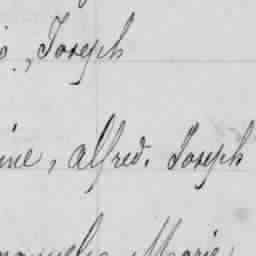 , Joseph
ine, Alfred. Joseph
Marie